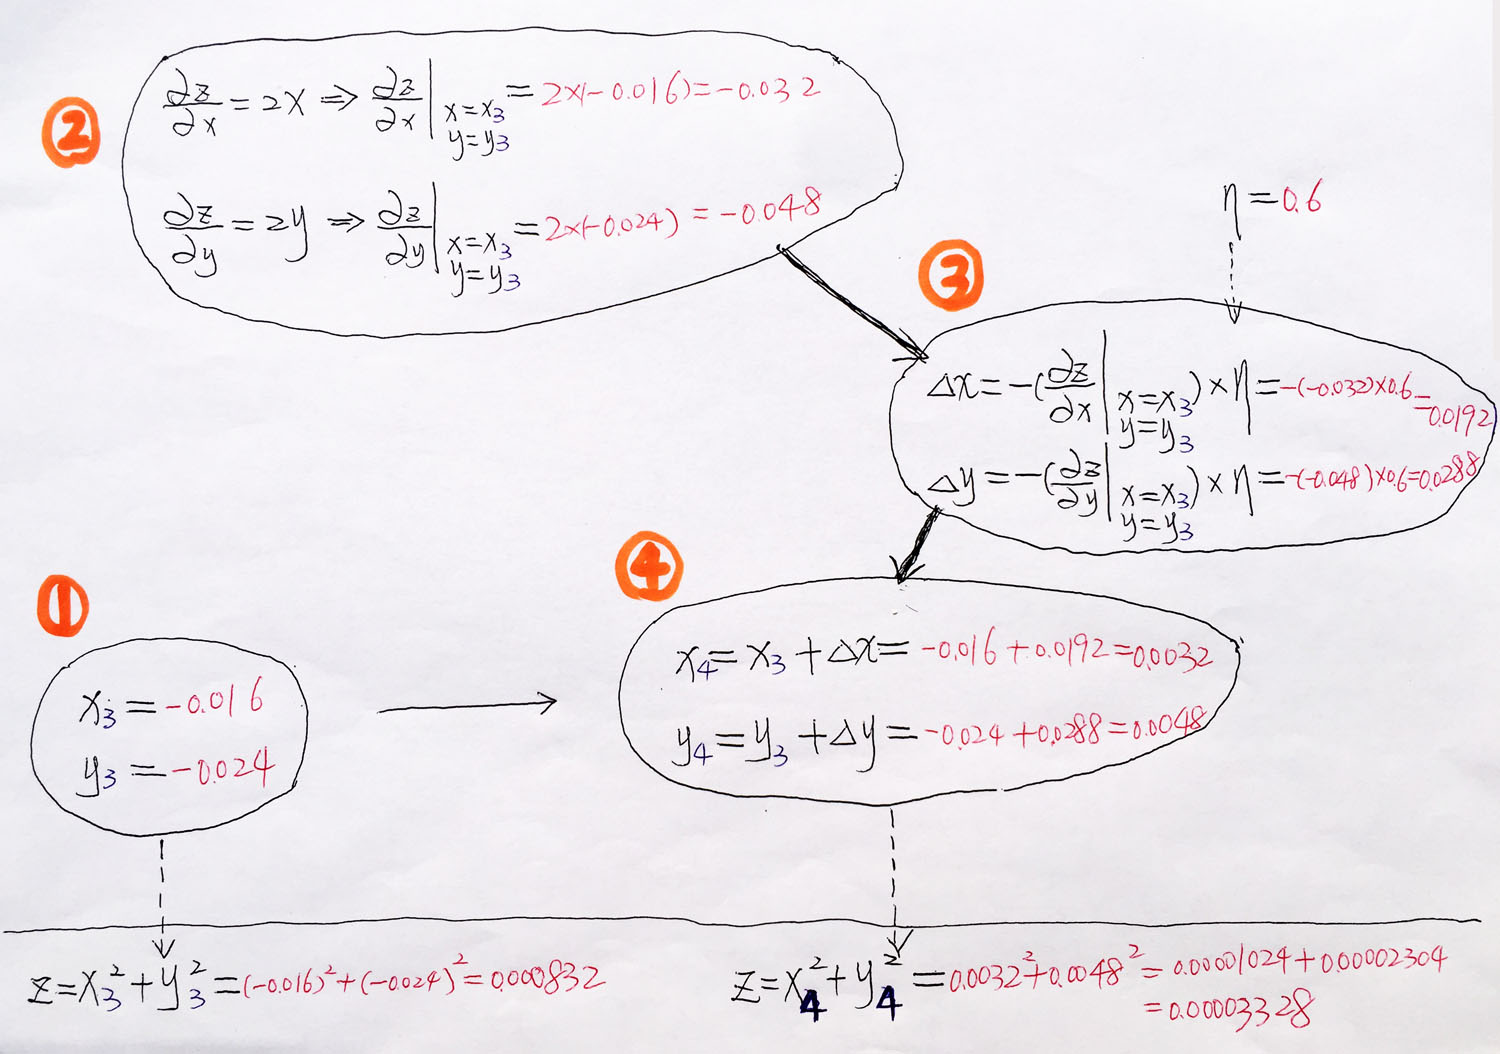 ②
∂z/∂x = 2x ⇒ ∂z/∂x | x=x₃ y=y₃ = 2×(-0.016)=-0.032
∂z/∂y = 2y ⇒ ∂z/∂y | x=x₃ y=y₃ = 2×(-0.024) = -0.048
η=0.6
③
Δx=-(∂z/∂x | x=x₃ y=y₃)×η=-(-0.032)×0.6=0.0192
Δy=-(∂z/∂y | x=x₃ y=y₃)×η=-(-0.048)×0.6=0.0288
①
x₃=-0.016
y₃=-0.024
④
x₄=x₃+Δx=-0.016+0.0192=0.0032
y₄=y₃+Δy=-0.024+0.0288=0.0048
z=x₃²+y₃²=(-0.016)²+(-0.024)²=0.000832
z=x₄²+y₄²=0.0032²+0.0048²=0.00001024+0.00002304
=0.00003328